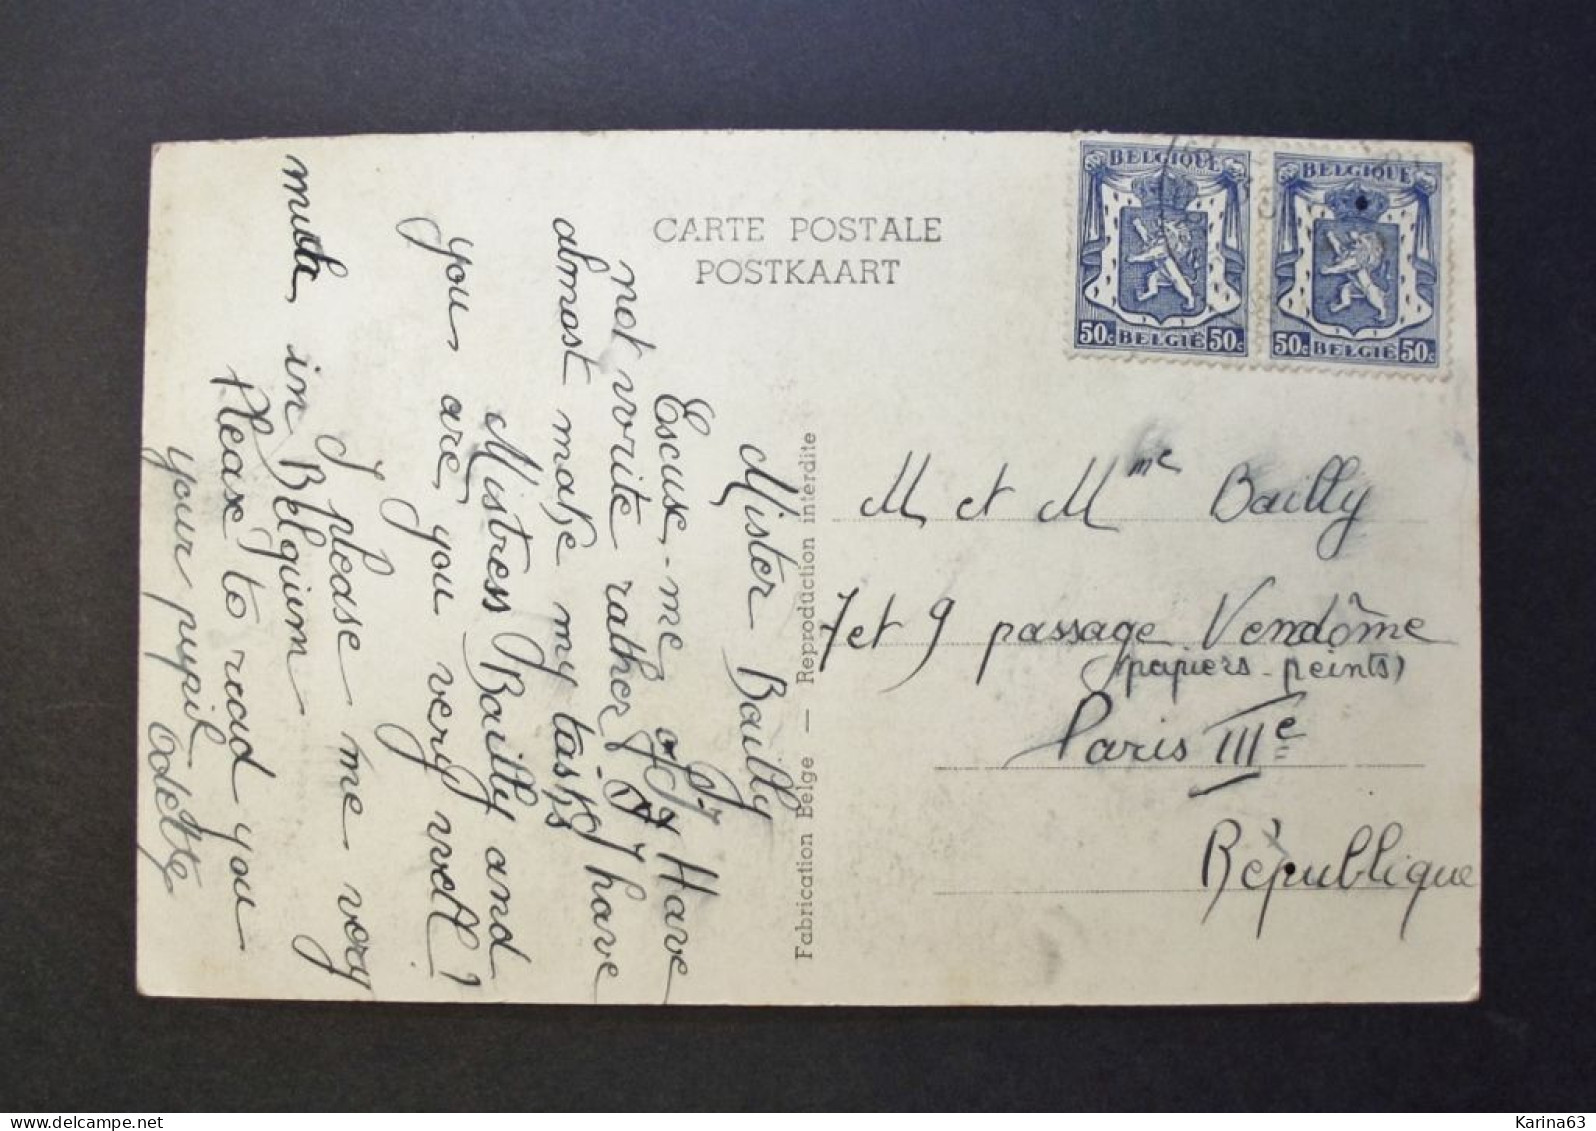 CARTE POSTALE
POSTKAART
BELGIQUE
50c BELGIË 50c
BELGIQUE
50c BELGIË 50c
Mister Bailly
Escuse-me of I Have
not write rather I have
almost make my tasks
Mistress Bailly and
you, are you very well?
I please me very
much in Belgium
Please to read you
your pupil Odette
Fabrication Belge — Reproduction interdite
M et Mme Bailly
7 et 9 passage Vendôme
(papiers-peints)
Paris IIIe
République
www.delcampe.net
Karina63